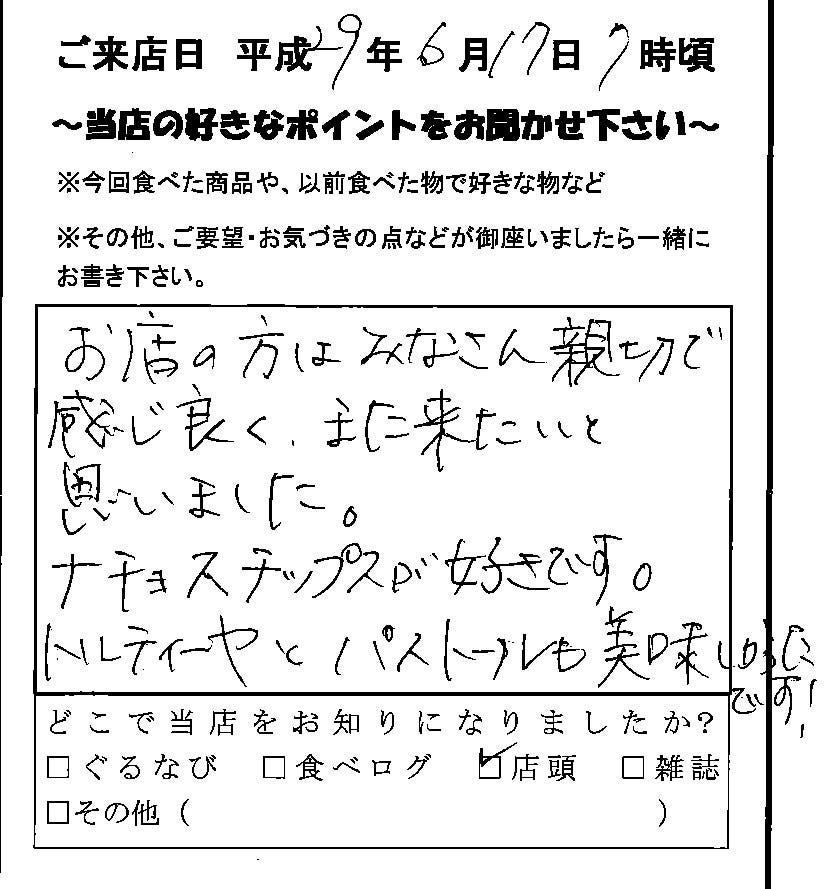 ご来店日 平成29年6月17日7時頃
～当店の好きなポイントをお聞かせ下さい～
※今回食べた商品や、以前食べた物で好きな物など
※その他、ご要望・お気づきの点などが御座いましたら一緒に
お書き下さい。
お店の方はみなさん親切で
感じ良く、また来たいと
思いました。
ナチョスチップスが好きです。
トルティーヤとパストールも美味しかった
です!
どこで当店をお知りになりましたか?
□ぐるなび □食べログ ☑店頭 □雑誌
□その他( )